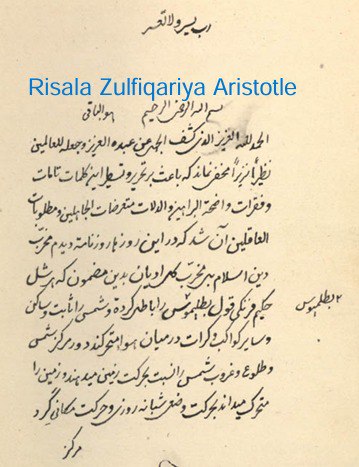 رب یسر ولا تعسر
Risala Zulfiqariya Aristotle
بسم الله الرحمن الرحیم هوالباقی
الحمد لله العزیز الذی کشف الحمد عن عبده العزیز وجعله للعالمین
نظیراً نذیراً مخفی نماند که باعث بر تحریر و تسطیر این کلمات تامات
وفقرات واضحة البراهین والدلات متعرضات الجاهلین ومطلوبات
العاقلین آن شد که در این روزها روزنامهٔ دیدم مخرب
دین اسلام بر مخرب کل ادیان بدین مضمون که هرشل
حکیم فرنگی قول بطلمیوس را باطل کرده و شمس را ثابت و ساکن
بطلمیوس
و سایر کواکب و کرات در میان هوا متحرکند و در مرکز شمس
و طلوع و غروب شمس را نسبت بحرکت زمین میدهند و زمین را
متحرک میداند بحرکت وضعی شبانه روزی و حرکت مکانی گرد
مرکز